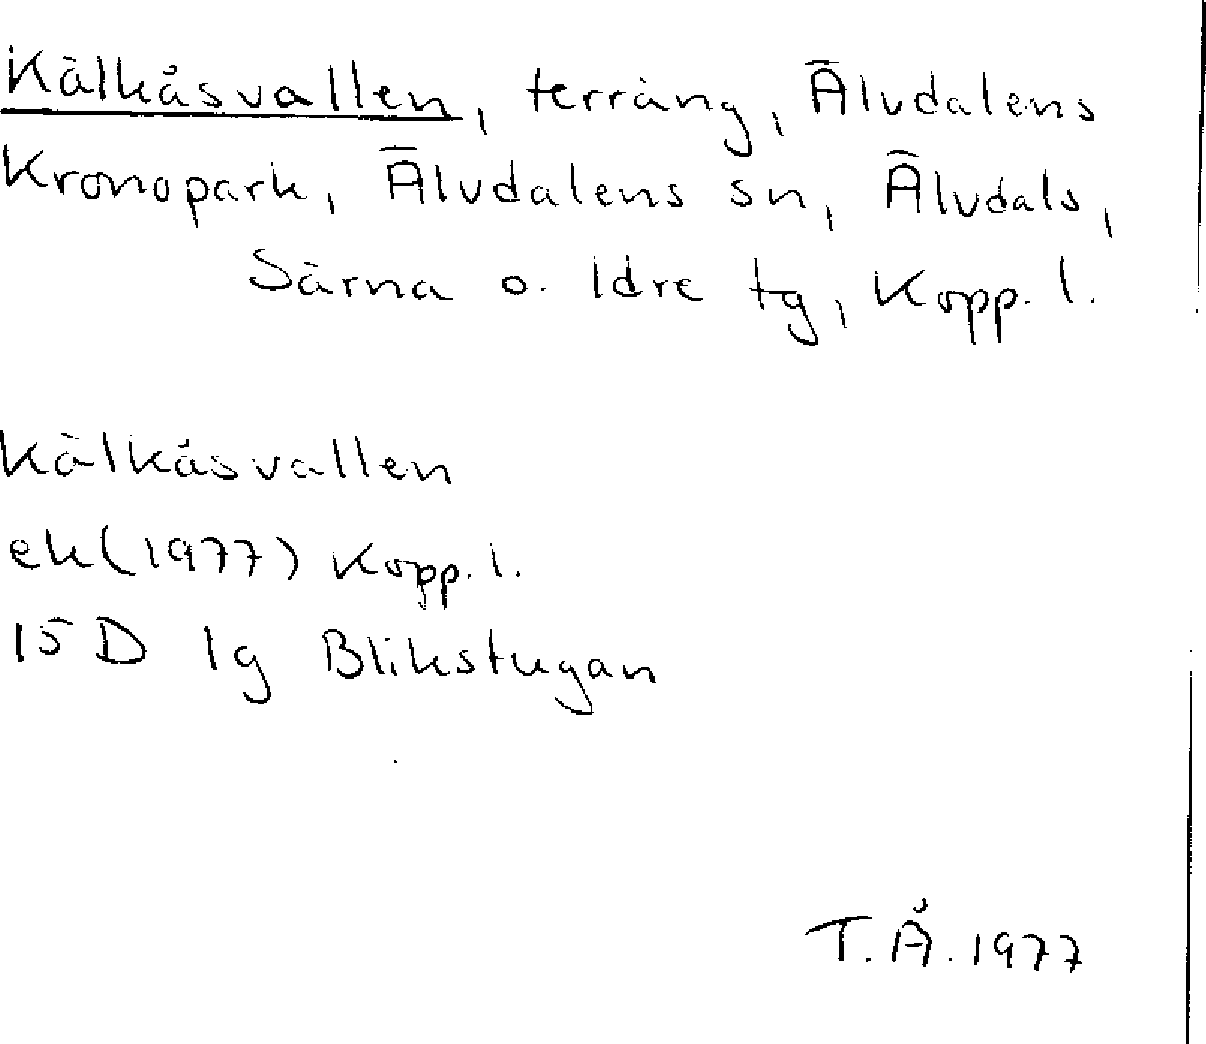 Kälkåsvallen, terräng, Älvdalens
Kronopark, Älvdalens sn, Älvdals,
Särna o. Idre tg, Kopp. l.
Kälkåsvallen
ek (1977) Kopp. l.
15 D 1g Blikstugan
T.Å. 1977